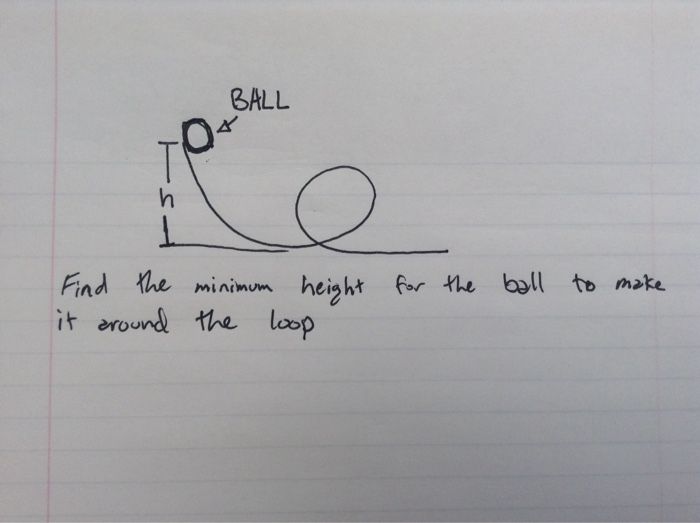 BALL
h
Find the minimum height for the ball to make
it around the loop